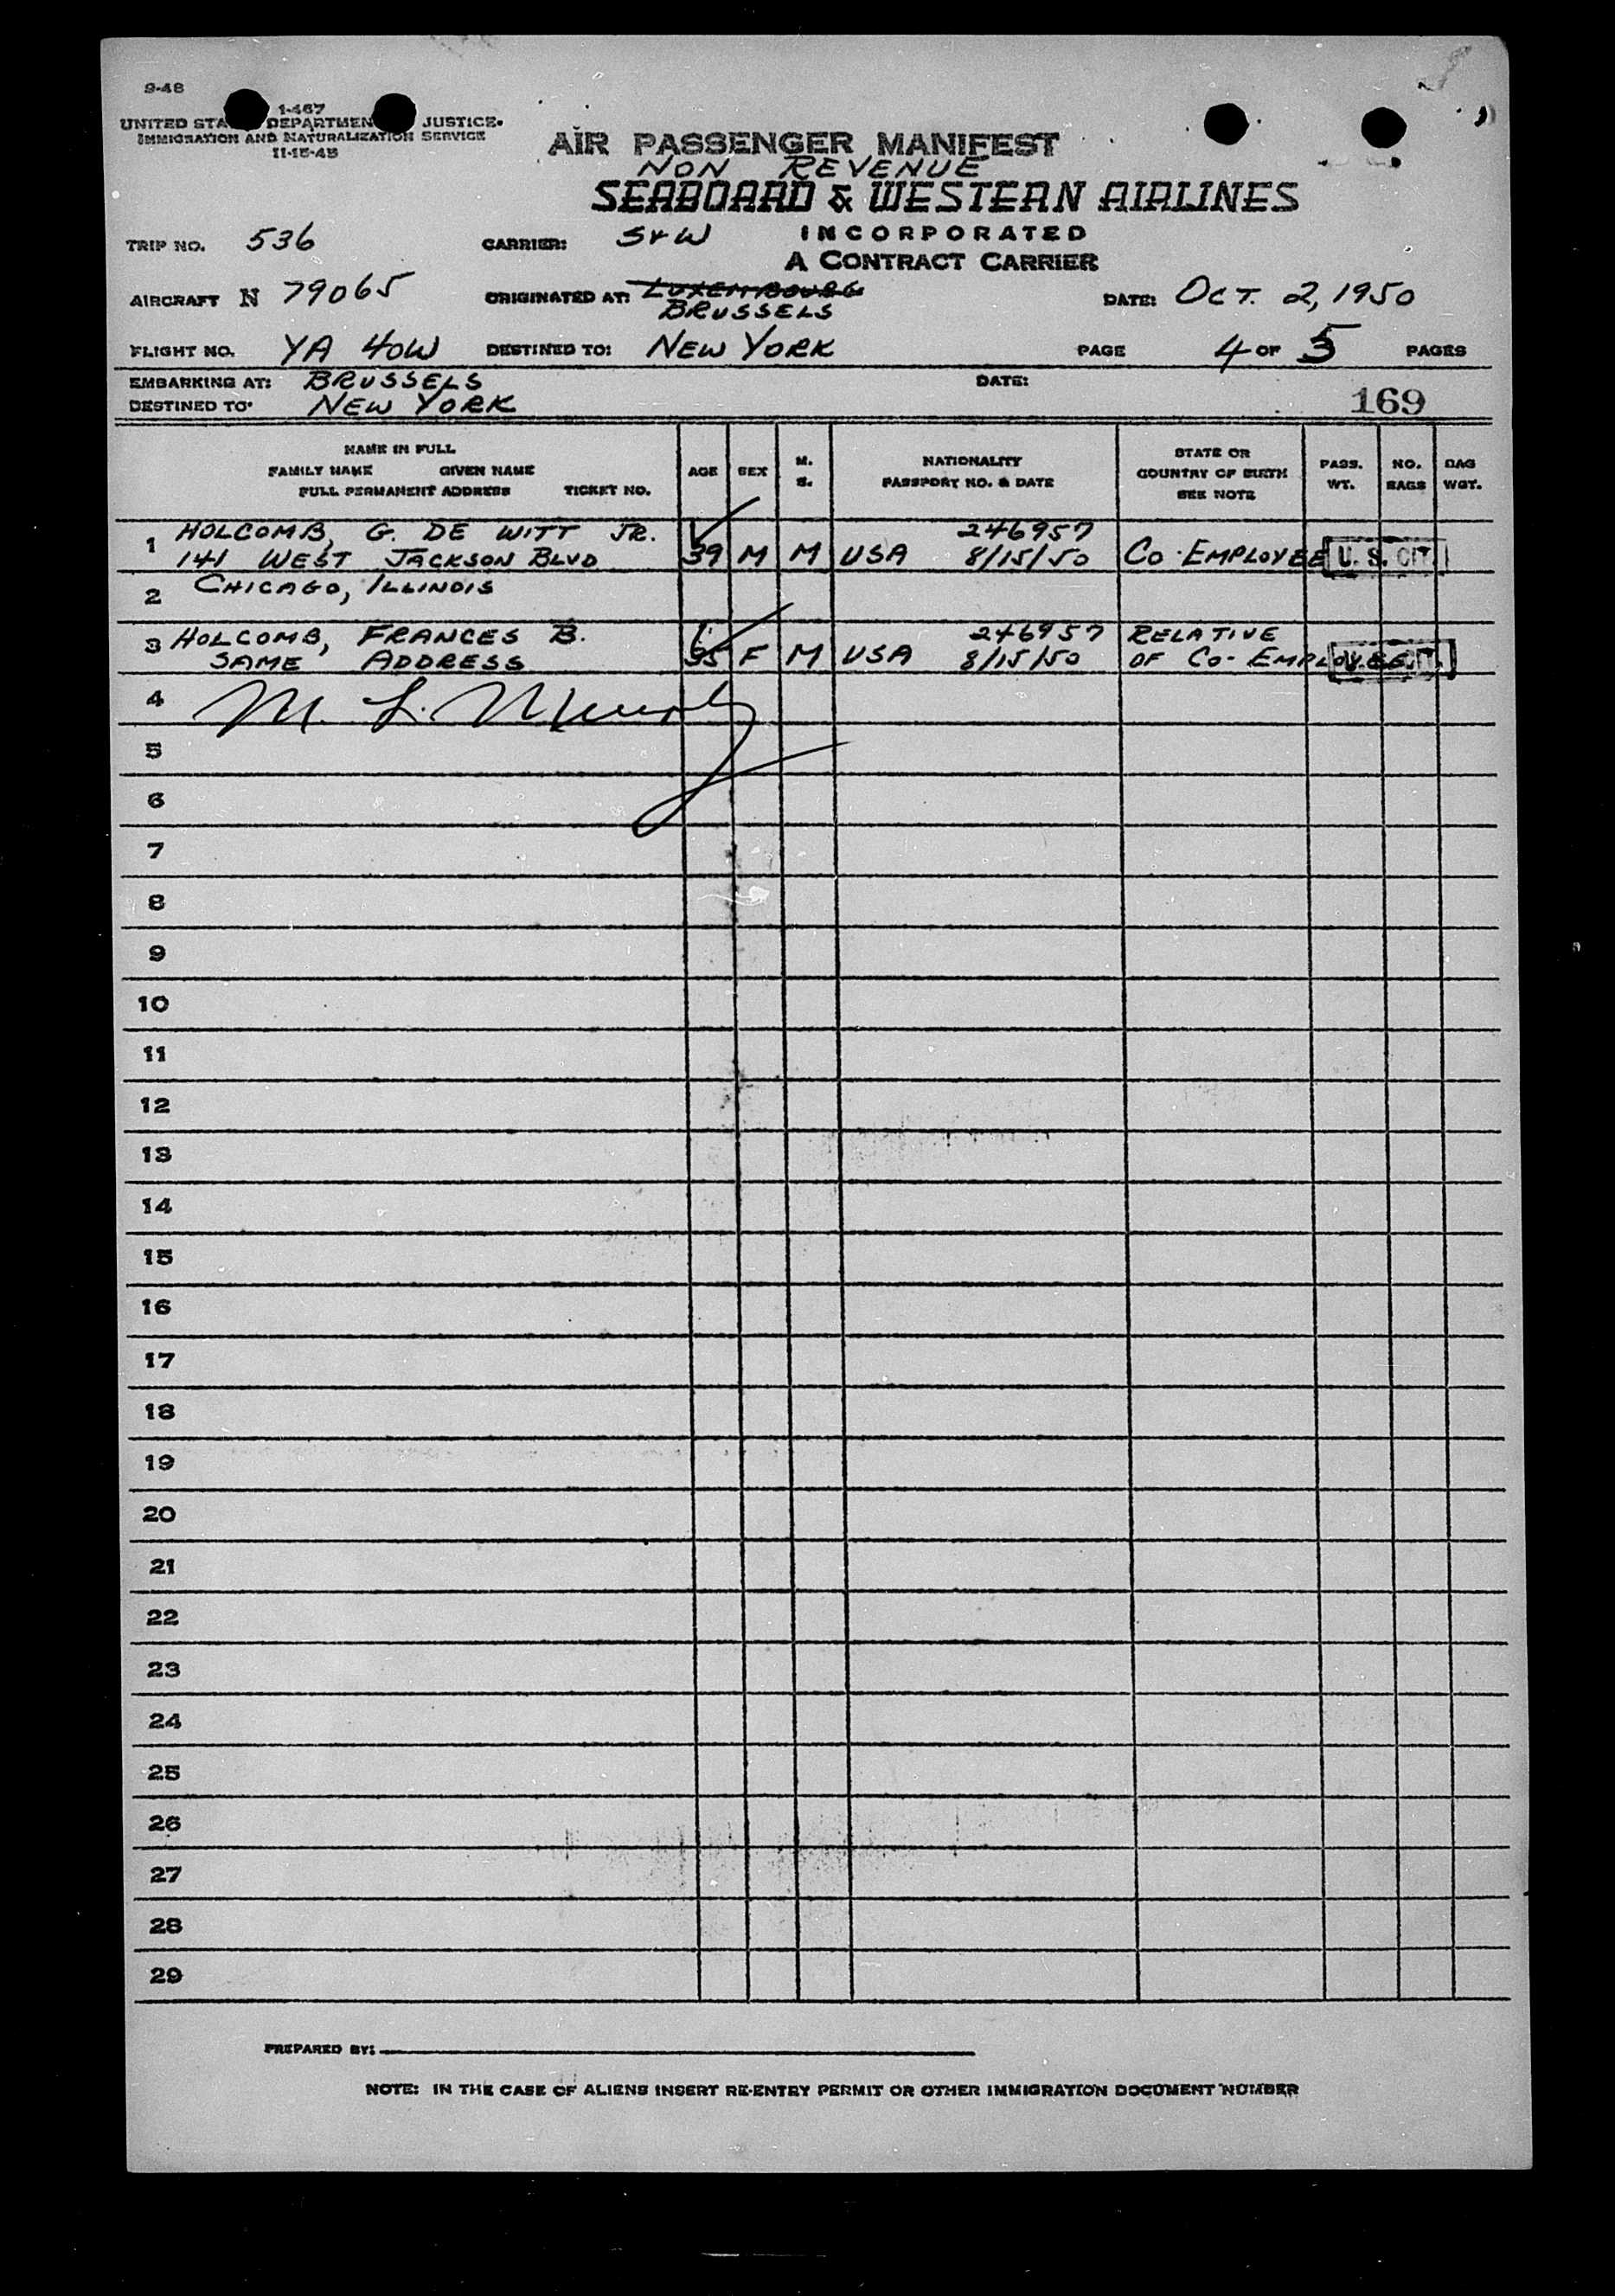 9-48
1-467
UNITED STA DEPARTMEN JUSTICE
IMMIGRATION AND NATURALIZATION SERVICE
11-15-45
AIR PASSENGER MANIFEST
NON REVENUE
SEABOARD & WESTERN AIRLINES
INCORPORATED
A CONTRACT CARRIER
TRIP NO. 536 CARRIER: S+W
AIRCRAFT N 79065 ORIGINATED AT: LUXEMBOURG DATE: OCT. 2, 1950
BRUSSELS
FLIGHT NO. YA 40W DESTINED TO: NEW YORK PAGE 4 OF 5 PAGES
EMBARKING AT: BRUSSELS DATE:
DESTINED TO: NEW YORK 169
NAME IN FULL
FAMILY NAME GIVEN NAME
FULL PERMANENT ADDRESS TICKET NO.
AGE
SEX
M.
S.
NATIONALITY
PASSPORT NO. & DATE
STATE OR
COUNTRY OF BIRTH
SEE NOTE
PASS.
WT.
NO.
BAGS
BAG
WGT.
1 HOLCOMB, G. DE WITT JR. 246957
141 WEST JACKSON BLVD 39 M M USA 8/15/50 CO-EMPLOYEE U. S. CIT.
2 CHICAGO, ILLINOIS
3 HOLCOMB, FRANCES B. 246957 RELATIVE
SAME ADDRESS 35 F M USA 8/15/50 OF CO-EMPLOYEE
4 M. L. Murphy
5
6
7
8
9
10
11
12
13
14
15
16
17
18
19
20
21
22
23
24
25
26
27
28
29
PREPARED BY:
NOTE: IN THE CASE OF ALIENS INSERT RE-ENTRY PERMIT OR OTHER IMMIGRATION DOCUMENT NUMBER